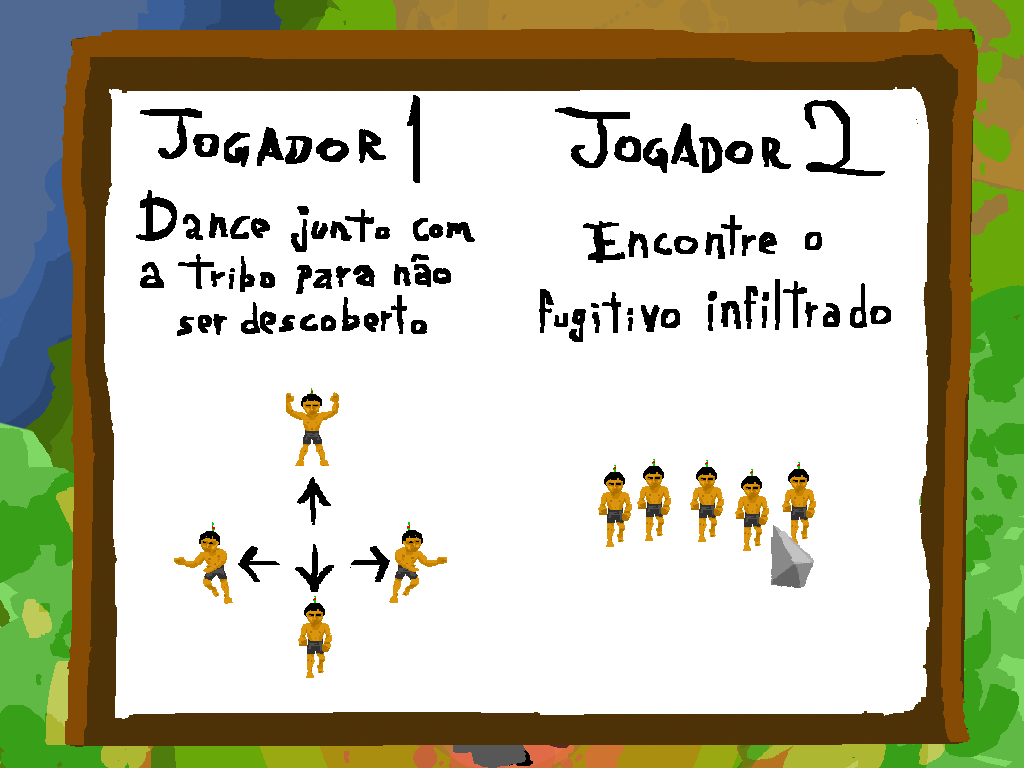 JOGADOR 1
Dance junto com
a tribo para não
ser descoberto
JOGADOR 2
Encontre o
fugitivo infiltrado